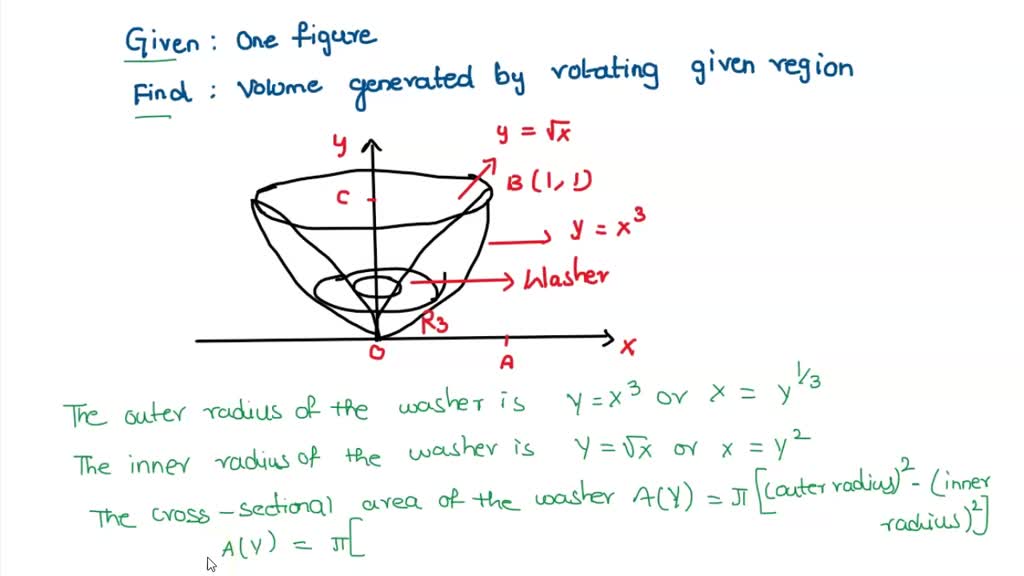 Given : One figure
Find : Volume generated by rotating given region
y = √x
y
B (1, 1)
C
y = x³
Washer
R3
O
A
x
The outer radius of the washer is y = x³ or x = y^1/3
The inner radius of the washer is y = √x or x = y²
The cross-sectional area of the washer A(y) = π[(outer radius)² - (inner radius)²]
A(y) = π[